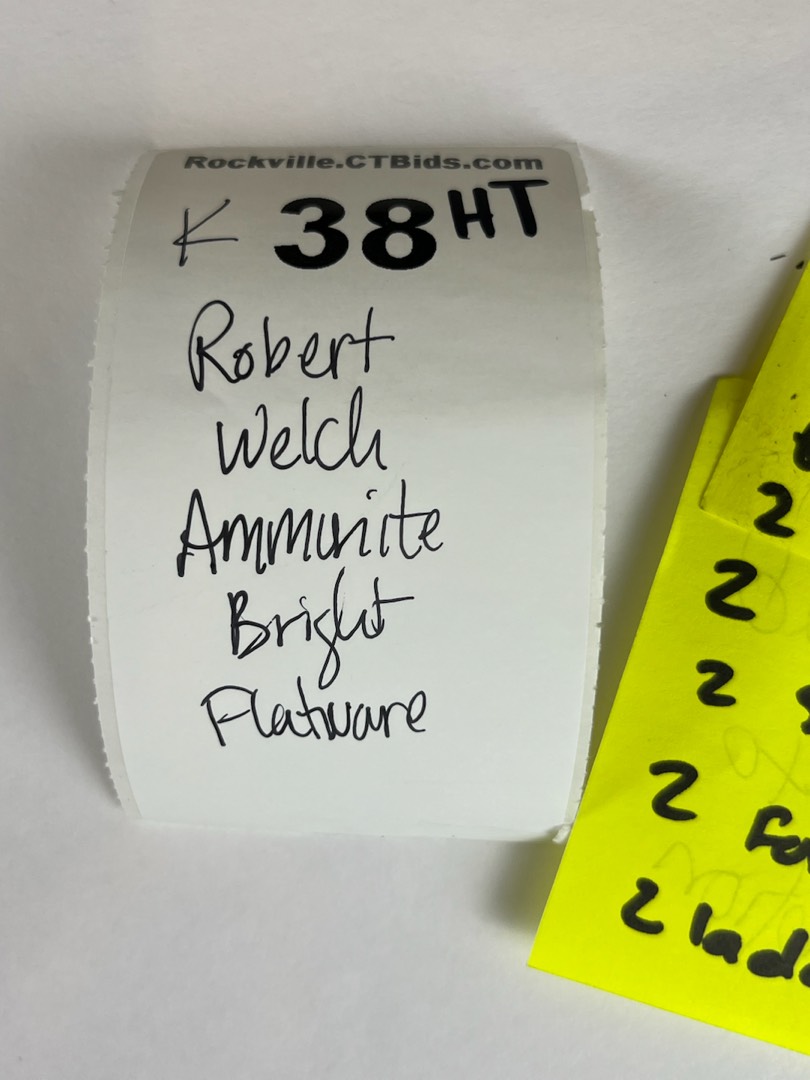 Rockville.CTBids.com
K 38 HT
Robert
Welch
Ammunite
Bright
Flatware
2
2
2
2
2